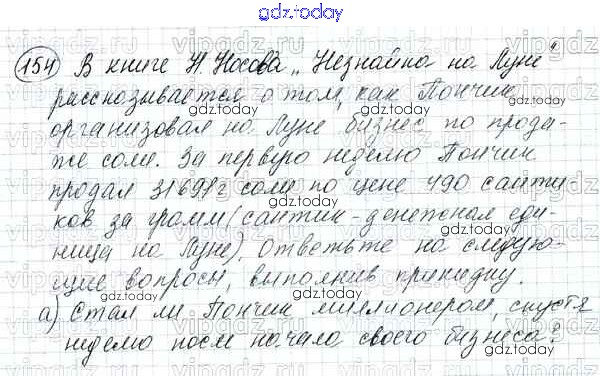 gdz.today
154 В книге Н. Носова „Незнайка на Луне"
рассказывается о том, как Пончик
организовал на Луне бизнес по прода-
же соли. За первую неделю Пончик
продал 31691 г соли по цене 490 санти-
ков за грамм (сантик - денежная еди-
ница на Луне). Ответьте на следую-
щие вопросы, выполнив прикидку.
а) Стал ли Пончик миллионером, спустя
неделю после начала своего бизнеса?